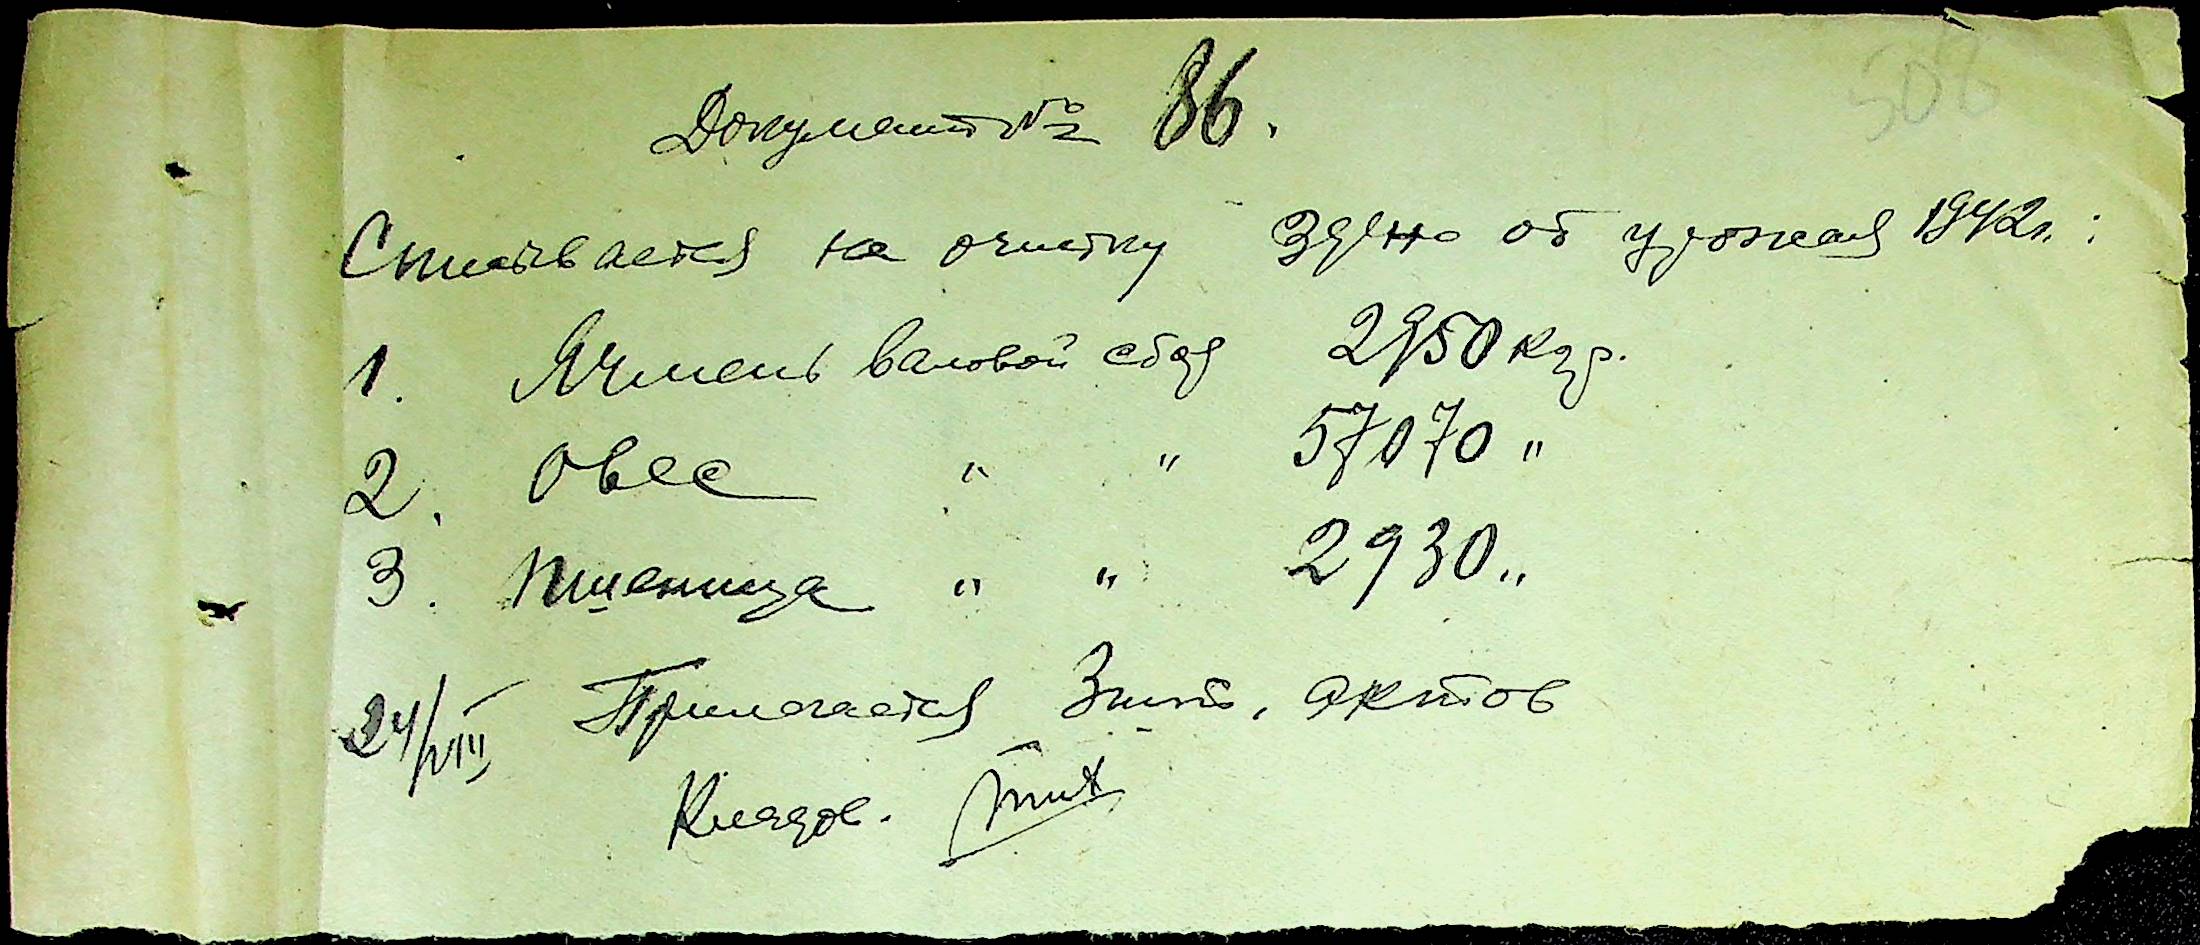 508
Документ № 86.
Списывается на очистку зерно от урожая 1942 г.:
1. Ячмень валовой сбор 2950 кгр.
2. Овес " " 57070 "
3. Пшеница " " 2930 "
24/VIII Прилагается 3 шт. актов
Кладов.